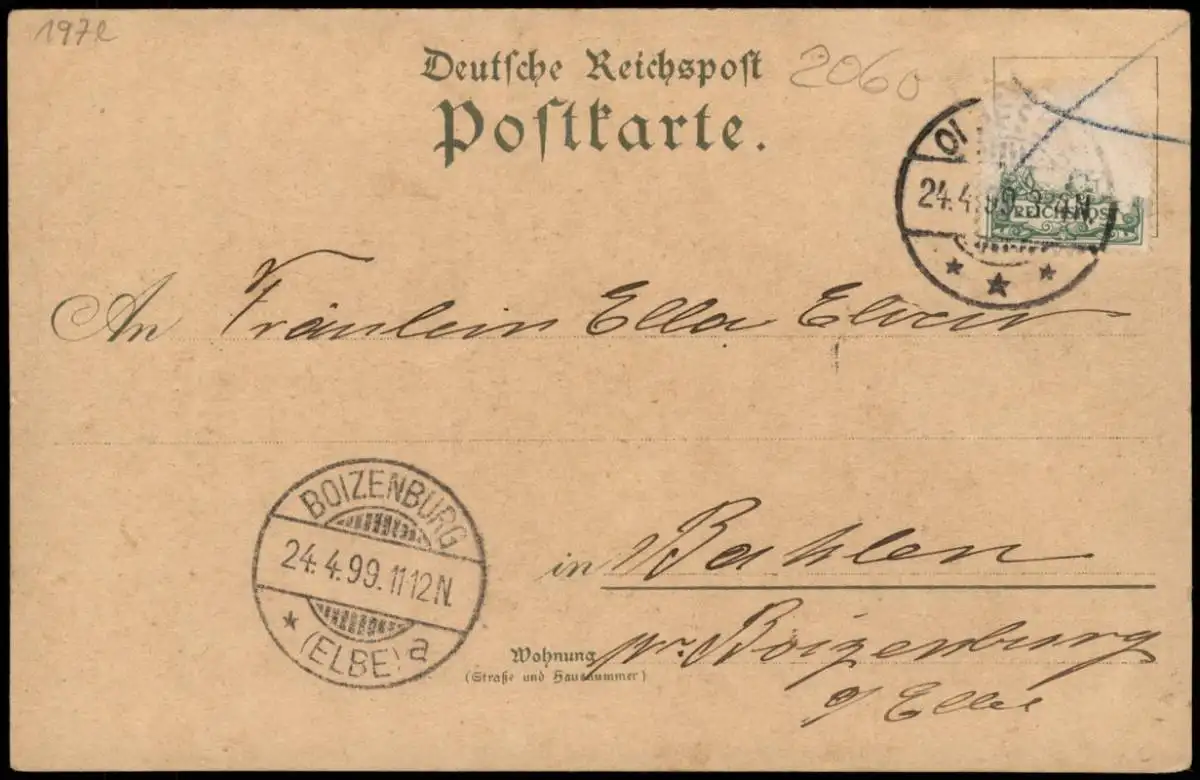 197e
Deutsche Reichspost
2060
Postkarte.
24.4.99. 3-4N.
REICHSPOST
An Fräulein Ella Elvers
BOIZENBURG
24.4.99.11-12N.
(ELBE) a
in Bahlen
Wohnung
(Straße und Hausnummer)
pr. Boizenburg
a/ Elbe